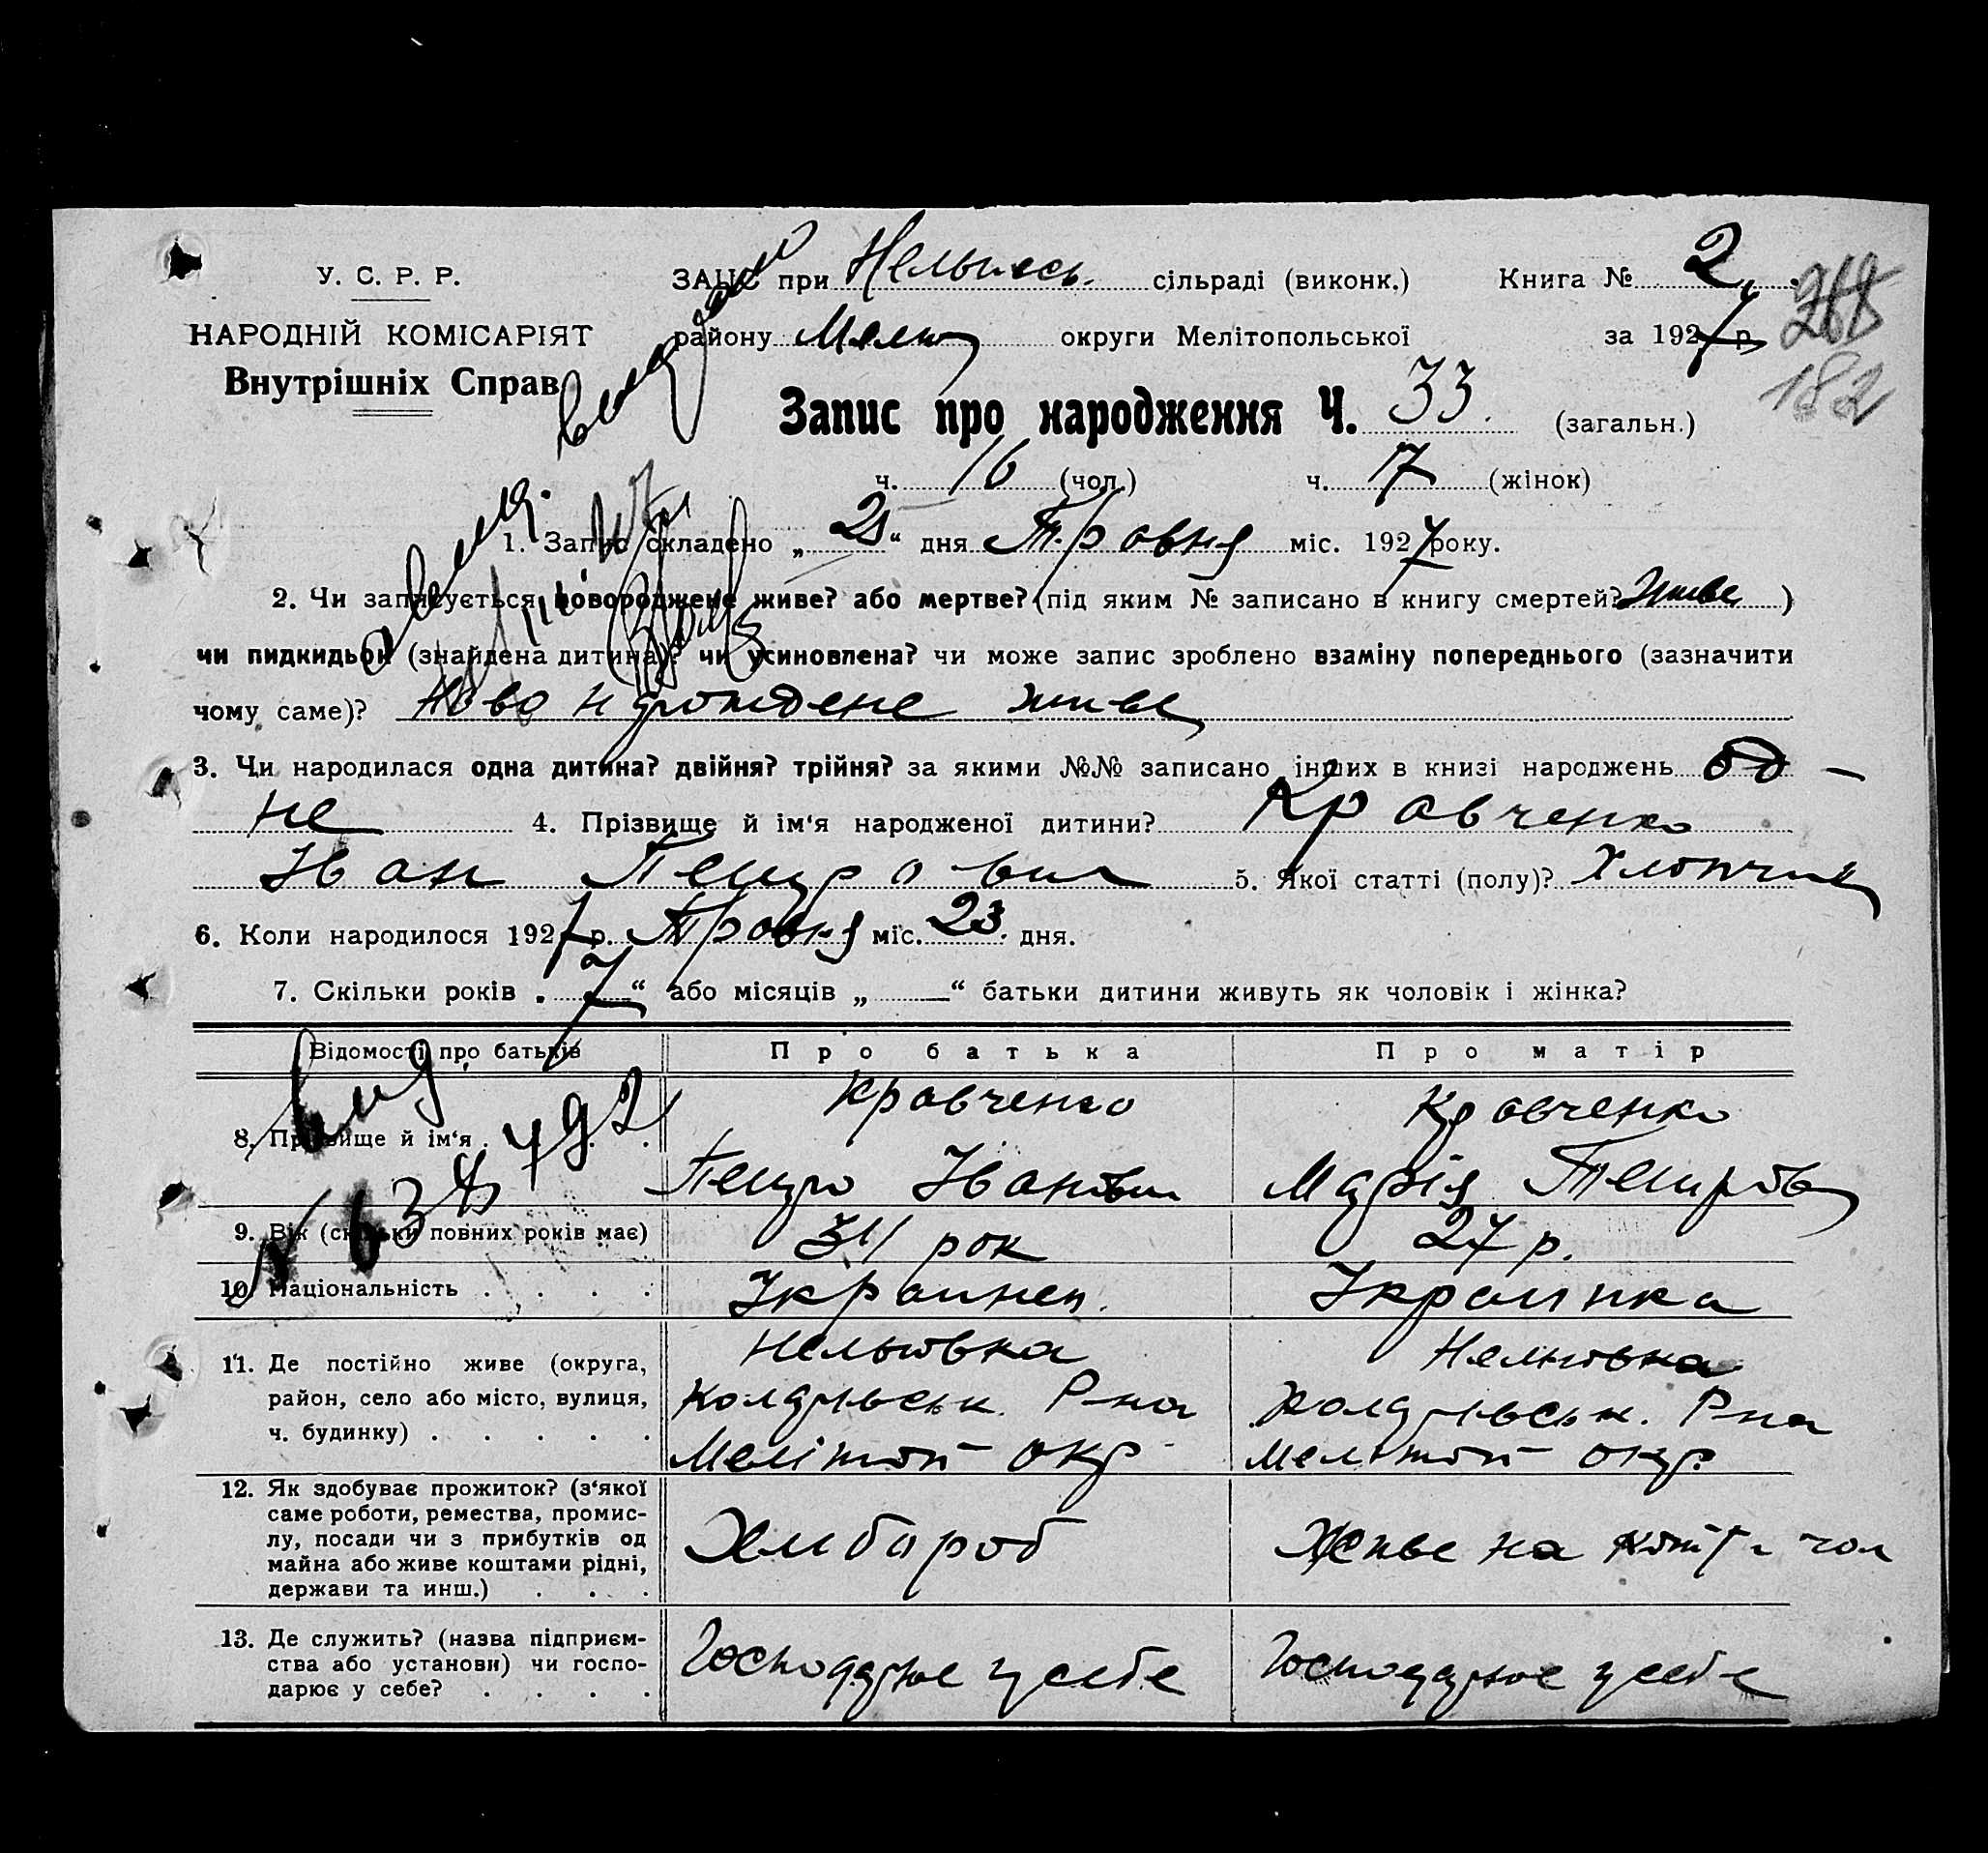 У. С. Р. Р.
НАРОДНІЙ КОМІСАРІЯТ
Внутрішніх Справ
ЗАЦС при сільраді (виконк.) Книга № 2
району Меліт округи Мелітопольської за 1927 р.
268
182
Запис про народження Ч. 33 (загальн.)
ч. 16 (чол.) ч. 17 (жінок)
1. Запис складено „25“ дня Травня міс. 1927 року.
2. Чи записується новороджене живе? або мертве? (під яким № записано в книгу смертей? живе)
чи пидкидьок (знайдена дитина)? чи усиновлена? чи може запис зроблено взаміну попереднього (зазначити
чому саме)? Ново нарождене живе
3. Чи народилася одна дитина? двійня? трійня? за якими №№ записано інших в книзі народжень од-
не 4. Прізвище й ім‘я народженої дитини? Кравченко
Іван Петрович 5. Якої статті (полу)? Хлопчик
6. Коли народилося 1927 р. Травня міс. 23 дня.
7. Скільки років „7“ або місяців „—“ батьки дитини живуть як чоловік і жінка?
Відомості про батьків Про батька Про матір
8. Прізвище й ім‘я Кравченко Кравченко
Петро Іванович Марія Петров
9. Вік (скільки повних років має) 31 рок 27 р.
10. Національність Українец. Українка
11. Де постійно живе (округа, Нельговка Нельговка
район, село або місто, вулиця, Коларівськ. Р-на Коларівськ. Р-на
ч. будинку) Мелітоп окр Мелітоп окр.
12. Як здобуває прожиток? (з‘якої
саме роботи, ремества, промис-
лу, посади чи з прибутків од Хлибороб Живе на кошт чол
майна або живе коштами рідні,
держави та инш.)
13. Де служить? (назва підприєм-
ства або установи) чи госпо- Господарює у себе Господарює у себе
дарює у себе?